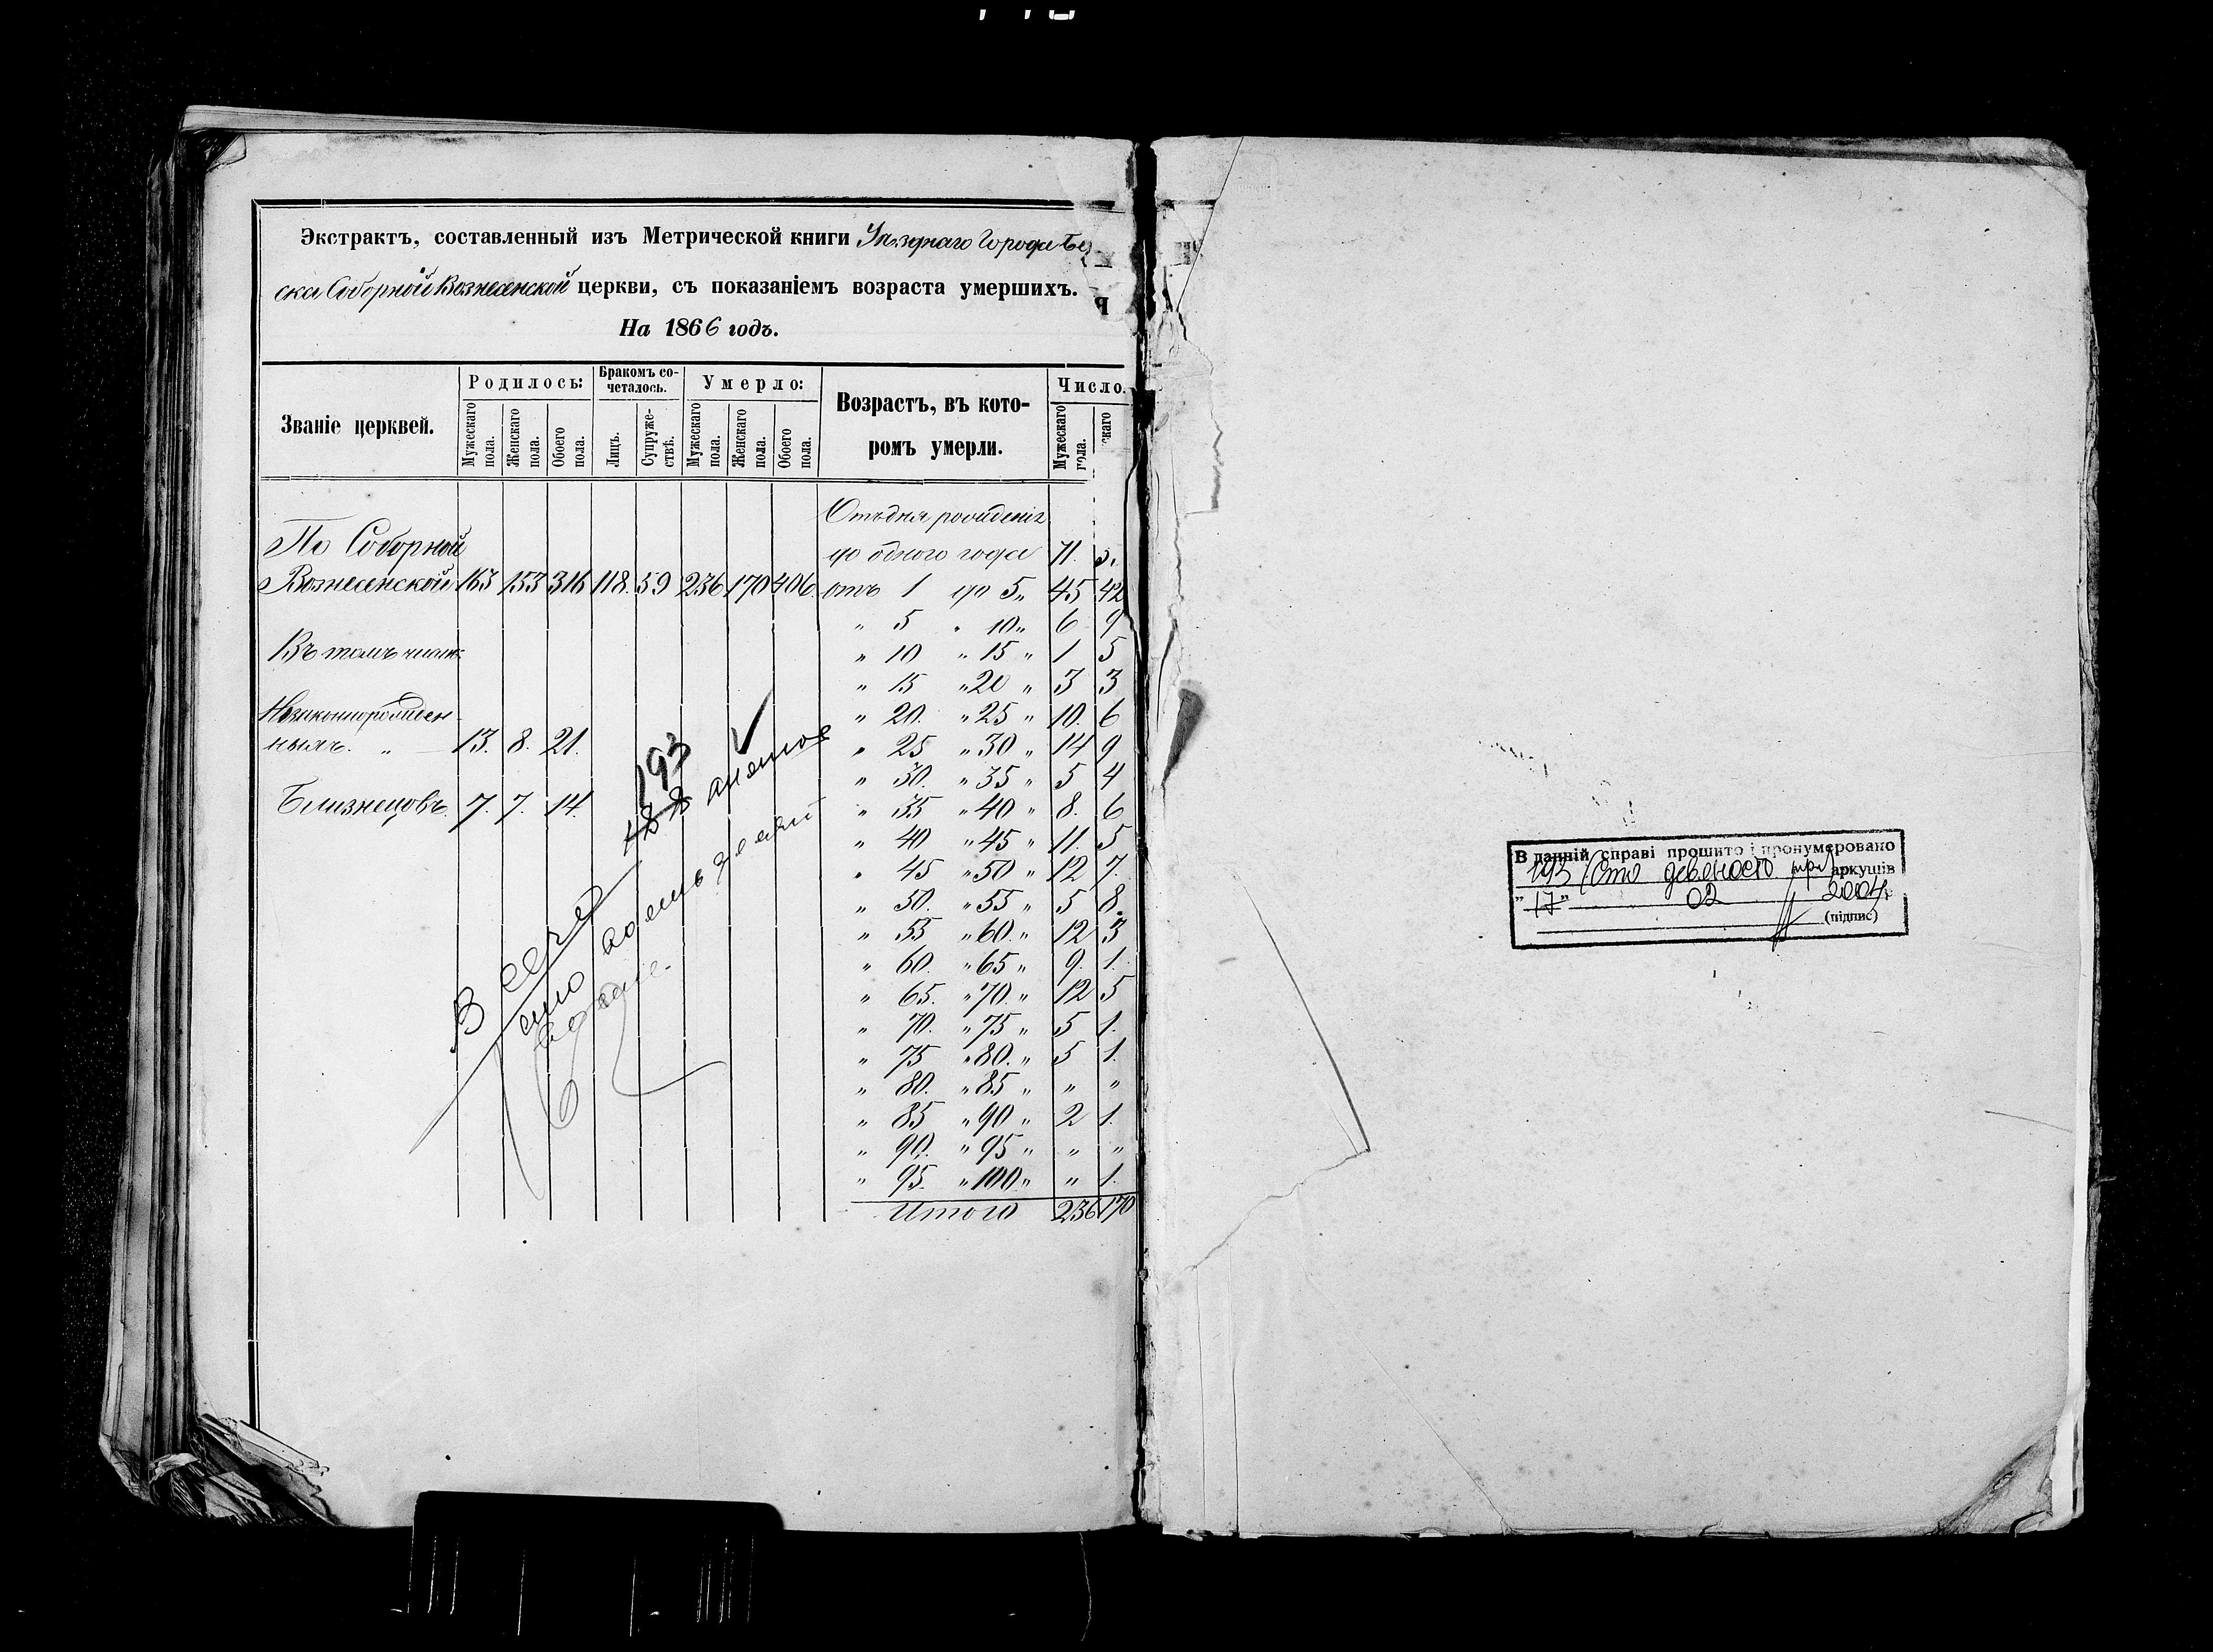 Экстрактъ, составленный изъ Метрической книги Уѣзднаго города
ска Соборной Вознесенской церкви, съ показаніемъ возраста умершихъ.
На 1866 годъ.
Званіе церквей.
Родилось:
Мужескаго пола.
Женскаго пола.
Обоего пола.
Бракомъ со-
четалось.
Лицъ.
Супруже-
ствъ.
Умерло:
Мужескаго пола.
Женскаго пола.
Обоего пола.
Возрастъ, въ кото-
ромъ умерли.
Число.
Мужескаго пола.
скаго
Отъ дня рожденія
По Соборной
до одного года 71.
Вознесенской 163 153 316 118. 59 236 170 406. отъ 1 до 5 „ 45 42
„ 5 „ 10 „ 6 9
Въ томъ числѣ
„ 10 „ 15 „ 1 5
„ 15 „ 20 „ 3 3
Незаконнорожден
„ 20. „ 25 „ 10. 6
ныхъ. „ 13. 8. 21.
„ 25 „ 30 „ 14 9
„ 30. „ 35 „ 5 4
Близнецовъ. 7. 7. 14.
„ 35 „ 40 „ 8. 6
„ 40 „ 45 „ 11. 5
„ 45 „ 50 „ 12 7.
„ 50. „ 55 „ 5 8.
„ 55 „ 60. „ 12 3
„ 60. „ 65 „ 9. 1.
„ 65. „ 70. „ 12 5
„ 70. „ 75 „ 5 1.
„ 75 „ 80. „ 5 1.
„ 80. „ 85 „ „ „
„ 85 „ 90 „ 2 1.
„ 90. „ 95 „ „ „
„ 95. „ 100 „ „ 1.
Итого 236 170
193
188
сто восемьдесят
В данній справі прошито і пронумеровано
193 (сто девяносто три) аркушів
"17" 02 2004р
(підпис)